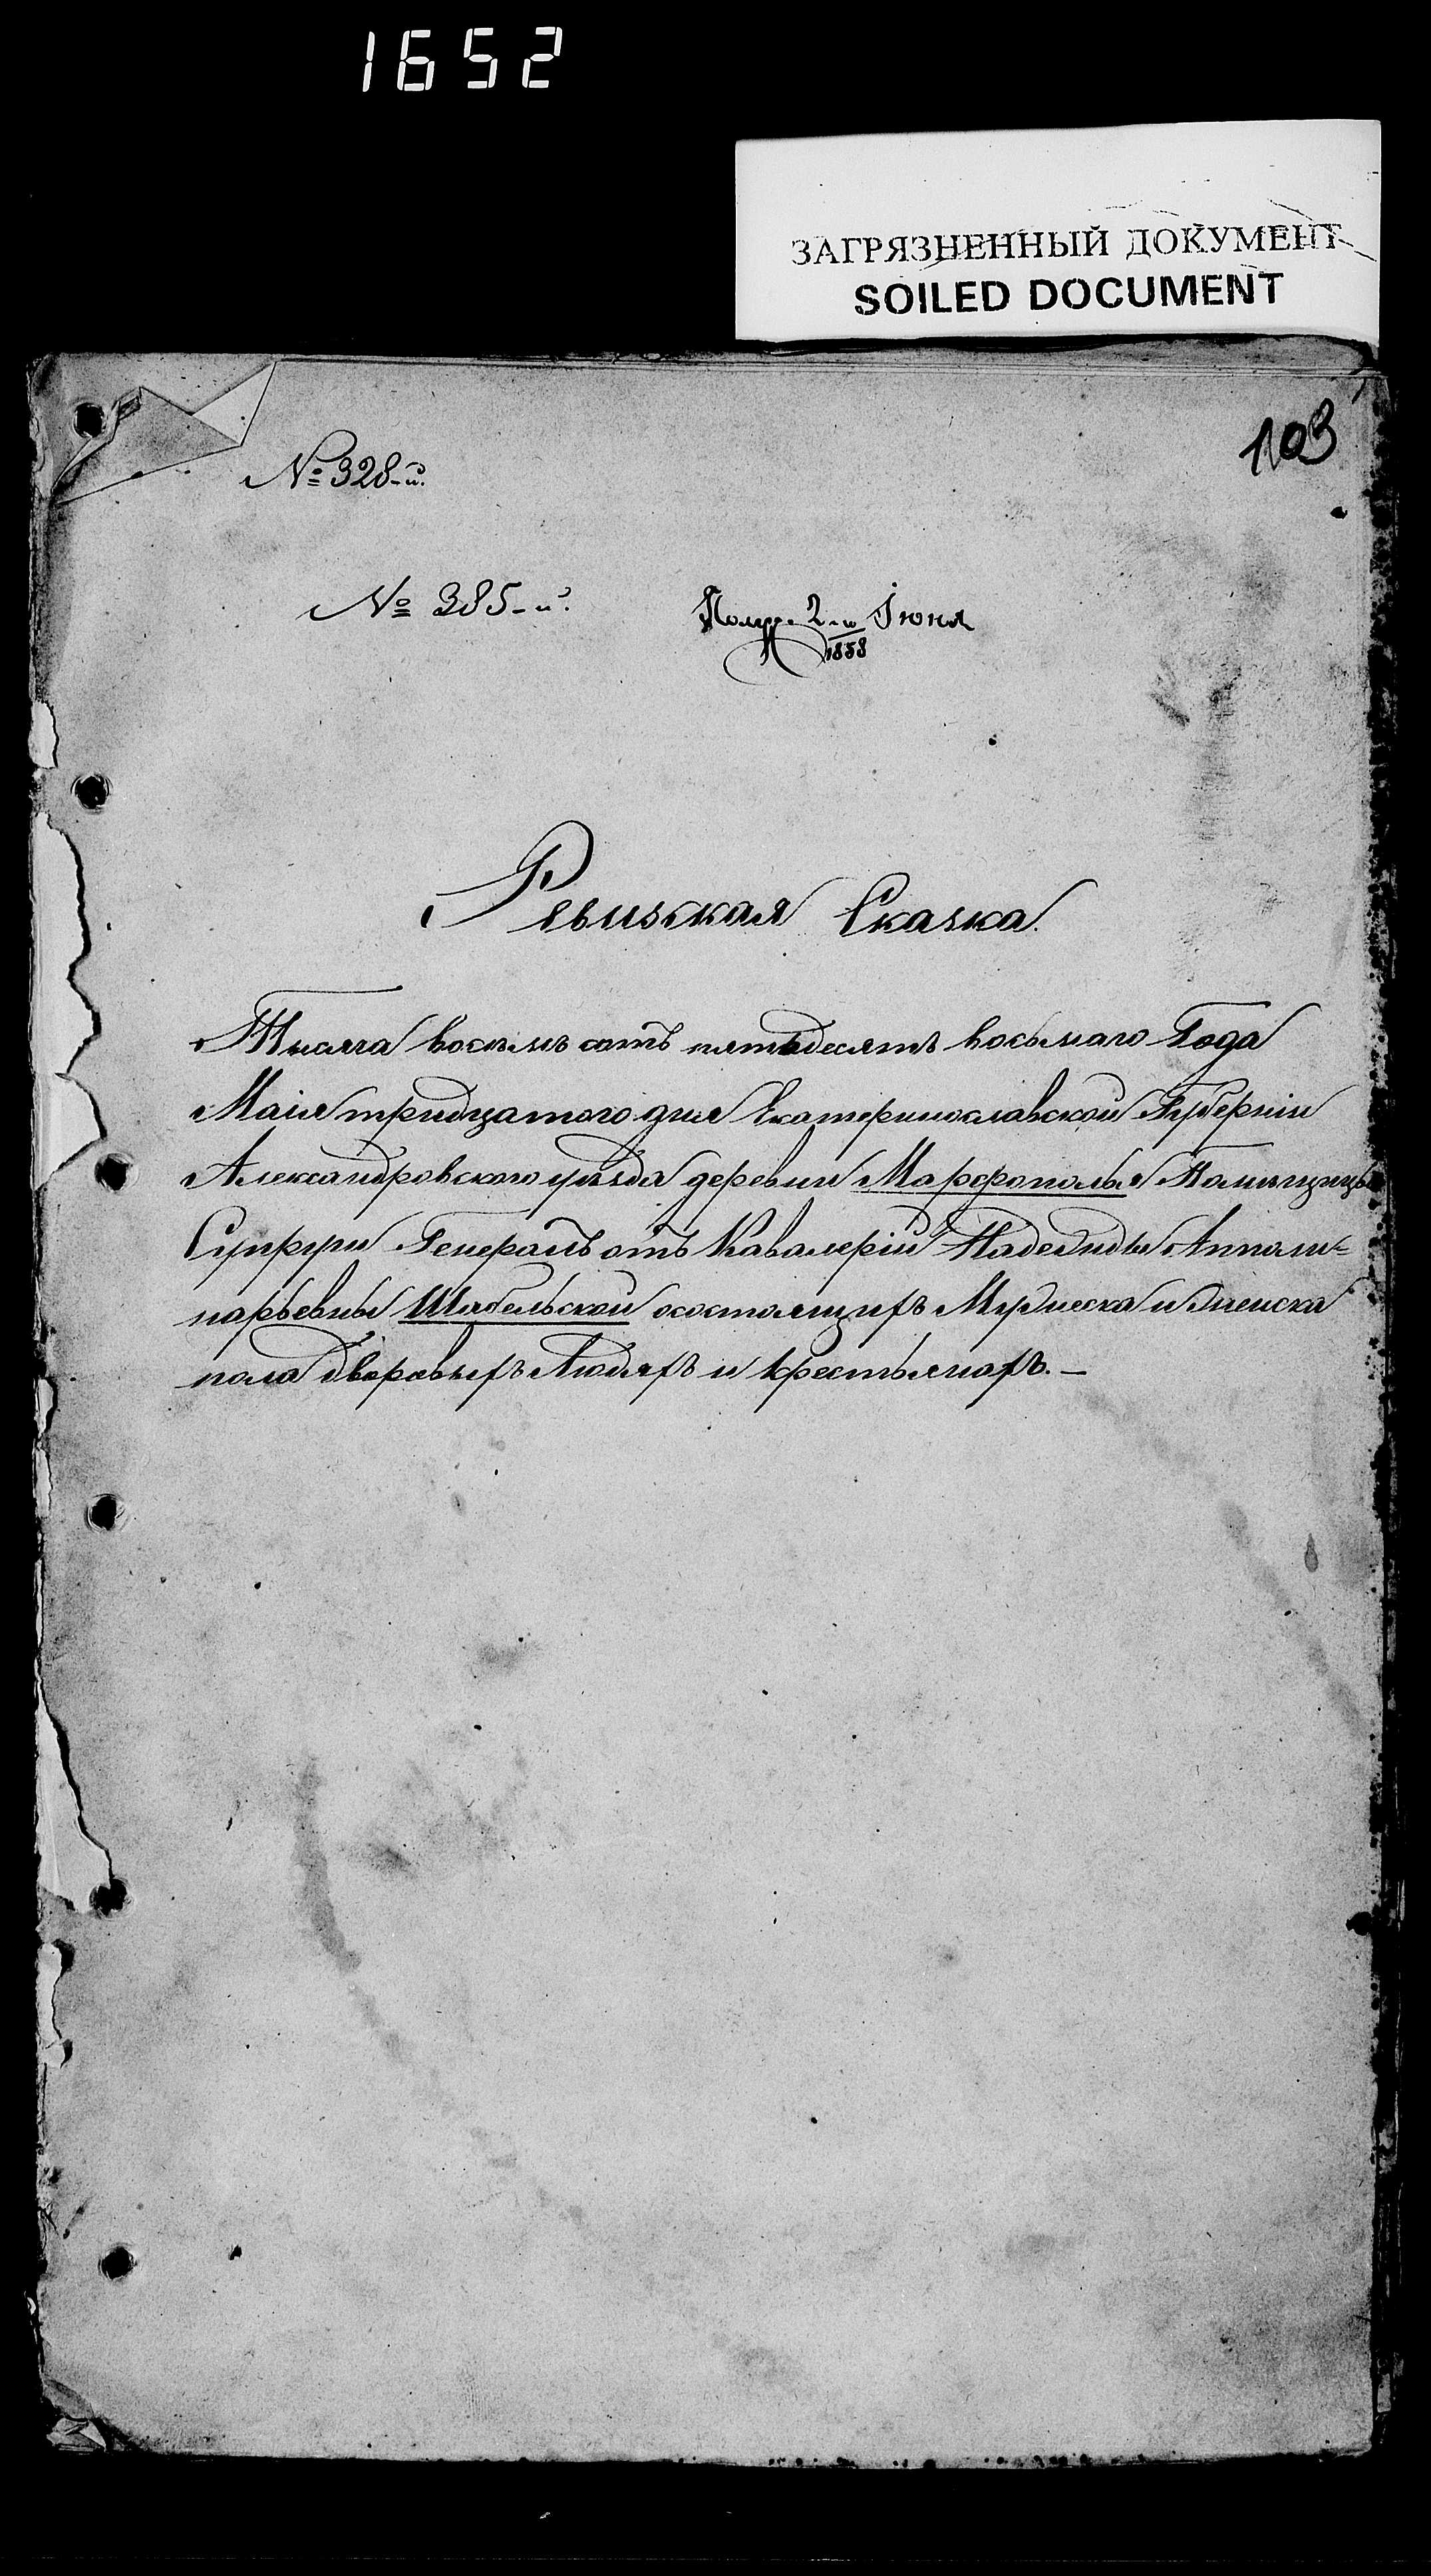 1652
ЗАГРЯЗНЕННЫЙ ДОКУМЕНТ
SOILED DOCUMENT
103
№ 328-й.
№ 385-й.
Получ. 2-го Іюня
1858
Ревизская Сказка.
Тысяча восемь сотъ пятьдесятъ восьмаго Года
Маія тридцатого дня Екатеринославской Губерніи
Александровского уѣзда деревни Марфополья Помѣщицы
Супруги Генералъ отъ Кавалеріи Надежды Апполи=
нарьевны Шабельской осостоящихъ Мужеска и Женска
пола дворовыхъ Людяхъ и крестьянахъ. —